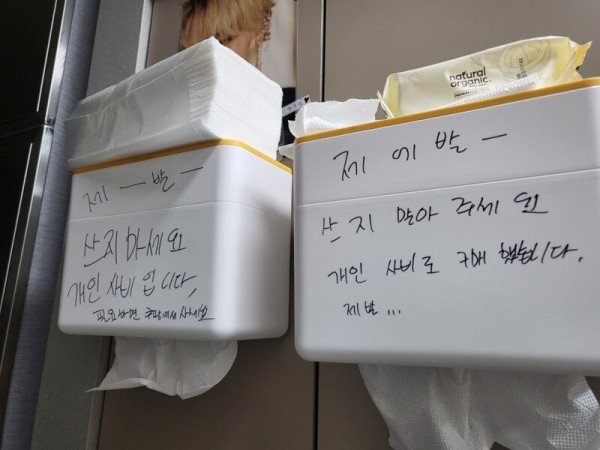 제 — 발 —
쓰지 마세요
개인 사비 입니다,
필요하면 쿠팡에서 사세요
natural
organic
제 에 발 —
쓰지 말아 주세요
개인 사비로 구매 했습니다.
제발 ...